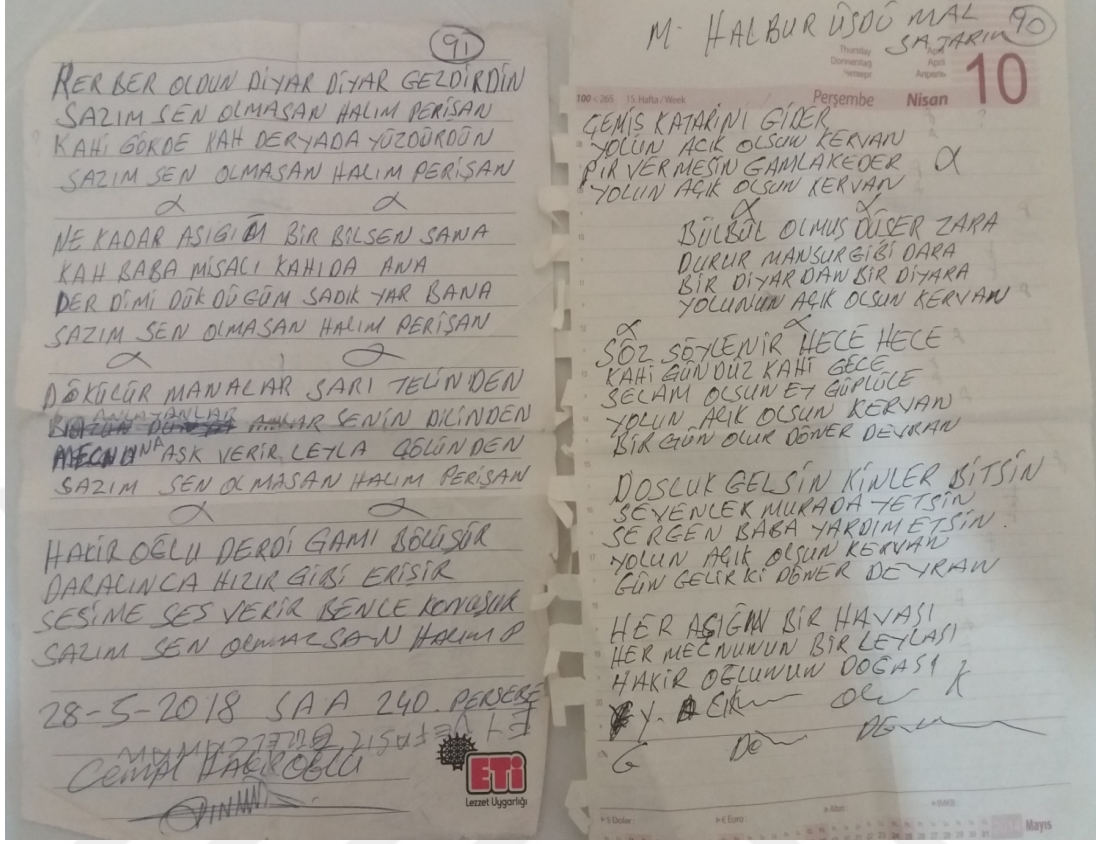 91
RERBER OLDUN DİYAR DİYAR GEZDİRDİN
SAZIM SEN OLMASAN HALIM PERİŞAN
KAHİ GÖKDE KAH DERYADA YÜZDÜRDÜN
SAZIM SEN OLMASAN HALIM PERİŞAN
NE KADAR AŞIGIM BİR BİLSEN SANA
KAH BABA MİSALİ KAHIDA ANA
DERDİMİ DÖKDÜGÜM SADIK YAR BANA
SAZIM SEN OLMASAN HALIM PERİSAN
DÖKÜLÜR MANALAR SARI TELİNDEN
ANLAYANLAR ANLAR SENİN DİLİNDEN
MECNUNA AŞK VERİR LEYLA GÖLÜNDEN
SAZIM SEN OLMASAN HALIM PERİŞAN
HAKİROĞLU DERDİ GAMI BÖLÜŞÜR
DARALINCA HIZIR GİBİ ERİSİR
SESİME SES VERİR BENLE KONUŞUR
SAZIM SEN OLMASSAN HALIM P
28-5-2018 SAA 240. PERŞEBE
CEMAL HAKİROĞLU
ETİ
Lezzet Uygarlığı
90
M. HALBUR ÜŞDÜ MAL
SATARIM
Thursday
Donnerstag
Четверг
April
April
Апрель
10
100 < 265 15. Hafta / Week
Perşembe Nisan
GEMİŞ KATARINI GİDER
YOLUN AÇIK OLSUN KERVAN
PİR VERMESİN GAMLAKEDER
YOLUN AÇIK OLSUN KERVAN
BÜLBÜL OLMUS DÜŞER ZARA
DURUR MANSUR GİBİ DARA
BİR DİYARDAN BİR DİYARA
YOLUNUN AÇIK OLSUN KERVAN
SÖZ SÖYLENİR HECE HECE
KAHİ GÜNDÜZ KAHİ GECE
SELAM OLSUN EY GÜPLÜCE
YOLUN AÇIK OLSUN KERVAN
BİR GÜN OLUR DÖNER DEVRAN
DOSLUK GELSİN KİNLER BİTSİN
SEVENLER MURADA YETSİN
SERGEN BABA YARDIM ETSİN.
YOLUN AÇIK OLSUN KERVAN
GÜN GELİR Kİ DÖNER DEVRAN
HER AŞIĞIN BİR HAVASI
HER MECNUNUN BİR LEYLASI
HAKİR OĞLUNUN DOĞASI
Y. K
G
$ Dolar:
€ Euro:
Altın:
İMKB:
Mayıs